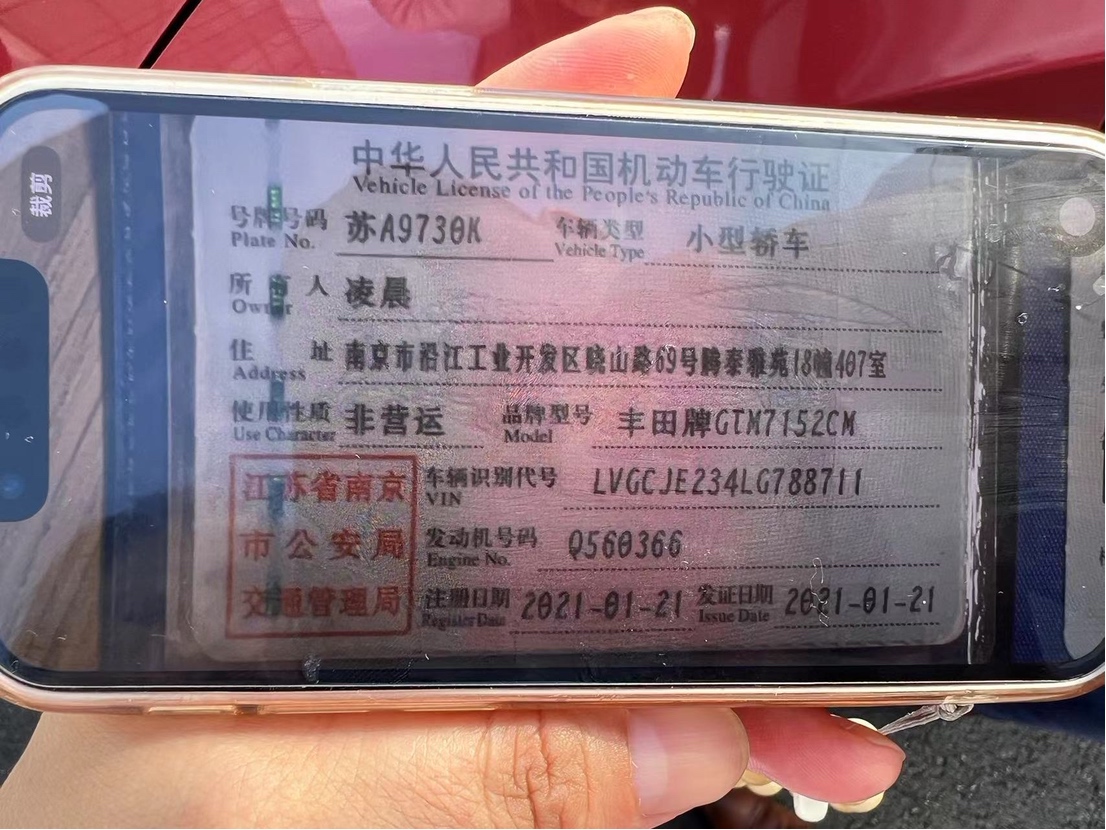 裁剪
中华人民共和国机动车行驶证
Vehicle License of the People's Republic of China
号牌号码 苏A9730K 车辆类型 小型轿车
Plate No. Vehicle Type
所有人 凌晨
Owner
住址 南京市沿江工业开发区晓山路69号腾泰雅苑18幢407室
Address
使用性质 非营运 品牌型号 丰田牌GTM7152CM
Use Character Model
江苏省南京
市公安局
交通管理局
车辆识别代号 LVGCJE234LG788711
VIN
发动机号码 Q560366
Engine No.
注册日期 2021-01-21 发证日期 2021-01-21
Register Date Issue Date